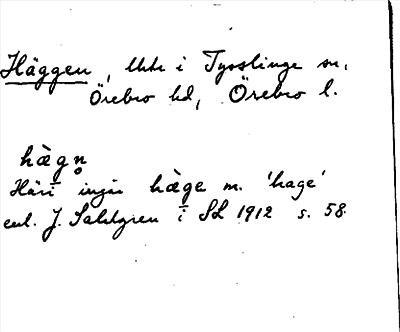 Häggen, Uttr i Tysslinge sn,
Örebro hd, Örebro l.
hàgn̥
Häri ingår hàge m. 'hage'
enl. J. Sahlgren i SL 1912 s. 58.